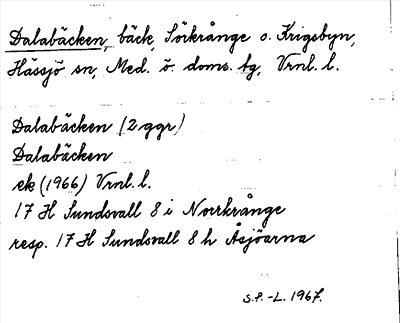 Dalabäcken, bäck, Sörkrånge o. Krigsbyn,
Hässjö sn, Med. ö. doms. tg, Vrnl. l.
Dalabäcken (2 ggr)
Dalabäcken
ek (1966) Vrnl. l.
17 H Sundsvall 8 i Norrkrånge
resp. 17 H Sundsvall 8 h Åsjöarna
S.F. -L. 1967.